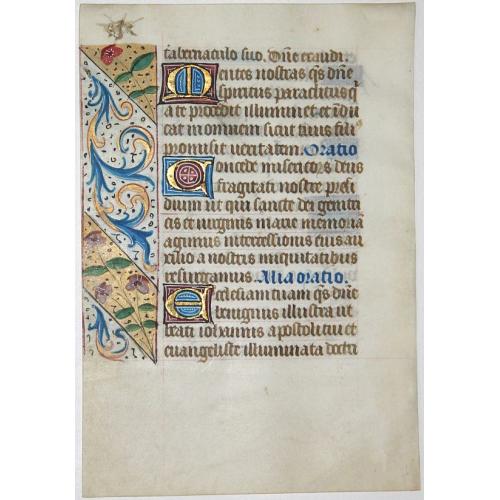 tabernaculo suo. Dñe exaudi.
Mentes nostras qs dñe
spiritus paraclitus q
a te procedit illuminet et indu
cat in omnem sicut tuus fili
promisit veritatem. Oratio
Concede misericors deus
fragilitati nostre presi
dium ut qui sancte dei genitri
cis et virginis marie memoria
agimus intercessionis eius au
xilio a nostris iniquitatibus
resurgamus. Alia oratio.
Ecclesiam tuam qs dñe
benignus illustra ut
beati iohannis apostoli tui et
evangeliste illuminata doctri